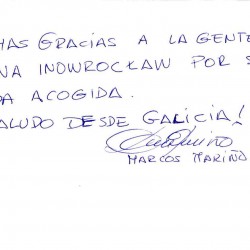 HAS GRACIAS A LA GENTE
NA INOWROCŁAW POR S
DA ACOGIDA.
ALUDO DESDE GALICIA!
MARCOS MARIÑO